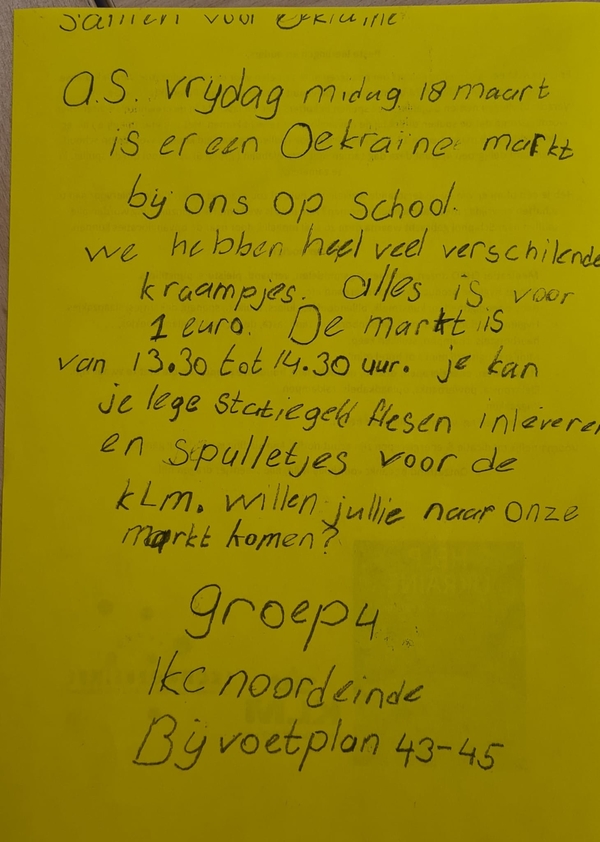 samen voor Oekraïne
a.s. vrijdag midag 18 maart
is er een Oekraïne markt
bij ons op school.
we hebben heel veel verschilende
kraampjes. alles is voor
1 euro. De markt is
van 13.30 tot 14.30 uur. je kan
je lege statiegeld flesen inleveren
en spulletjes voor de
kLm. willen jullie naar onze
markt komen?
groep 4
Ikc noordeinde
Bij voetplan 43-45